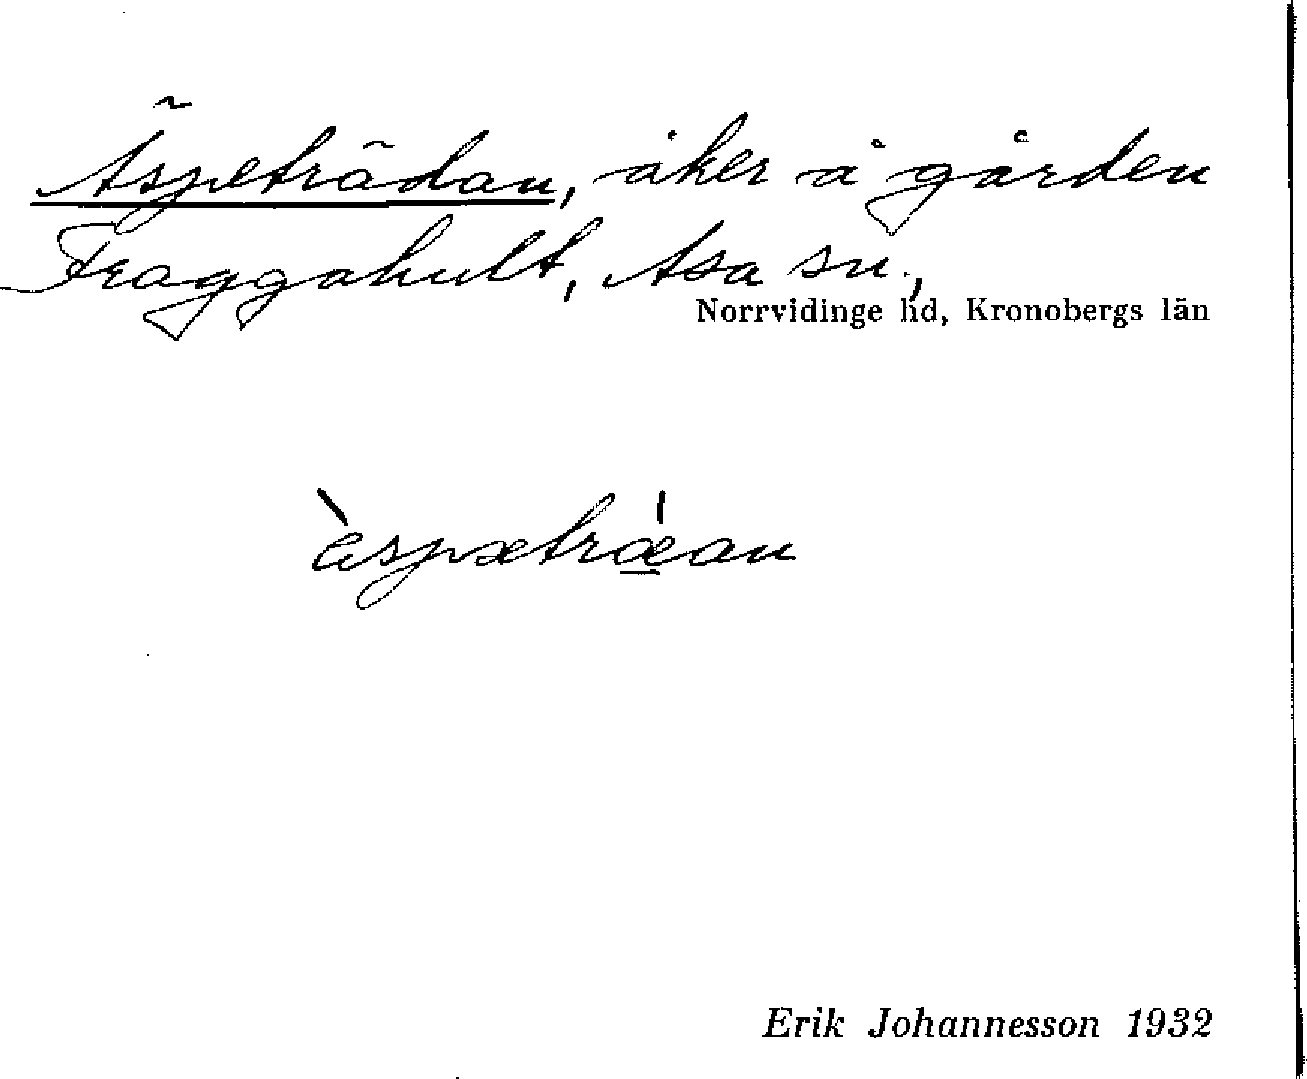 Äspeträdan, åker å gården
Fraggahult, Asa sn.,
Norrvidinge hd, Kronobergs län
æ̀spætrǽan
Erik Johannesson 1932